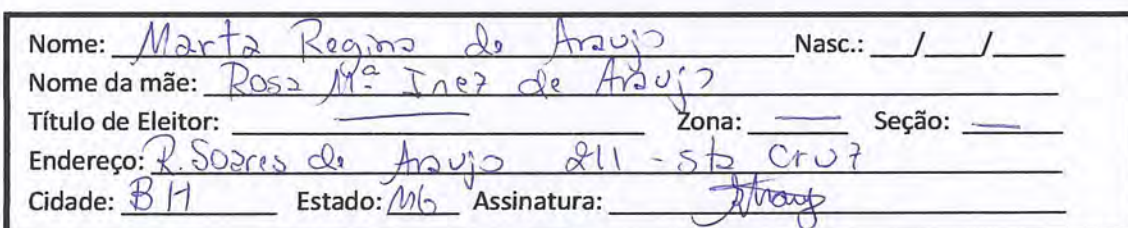 Nome: Marta Regina de Araujo Nasc.: / /
Nome da mãe: Rosa Mª Inez de Araujo
Título de Eleitor: — Zona: — Seção: —
Endereço: R. Soares de Araujo 211 - sta Cruz
Cidade: BH Estado: MG Assinatura: